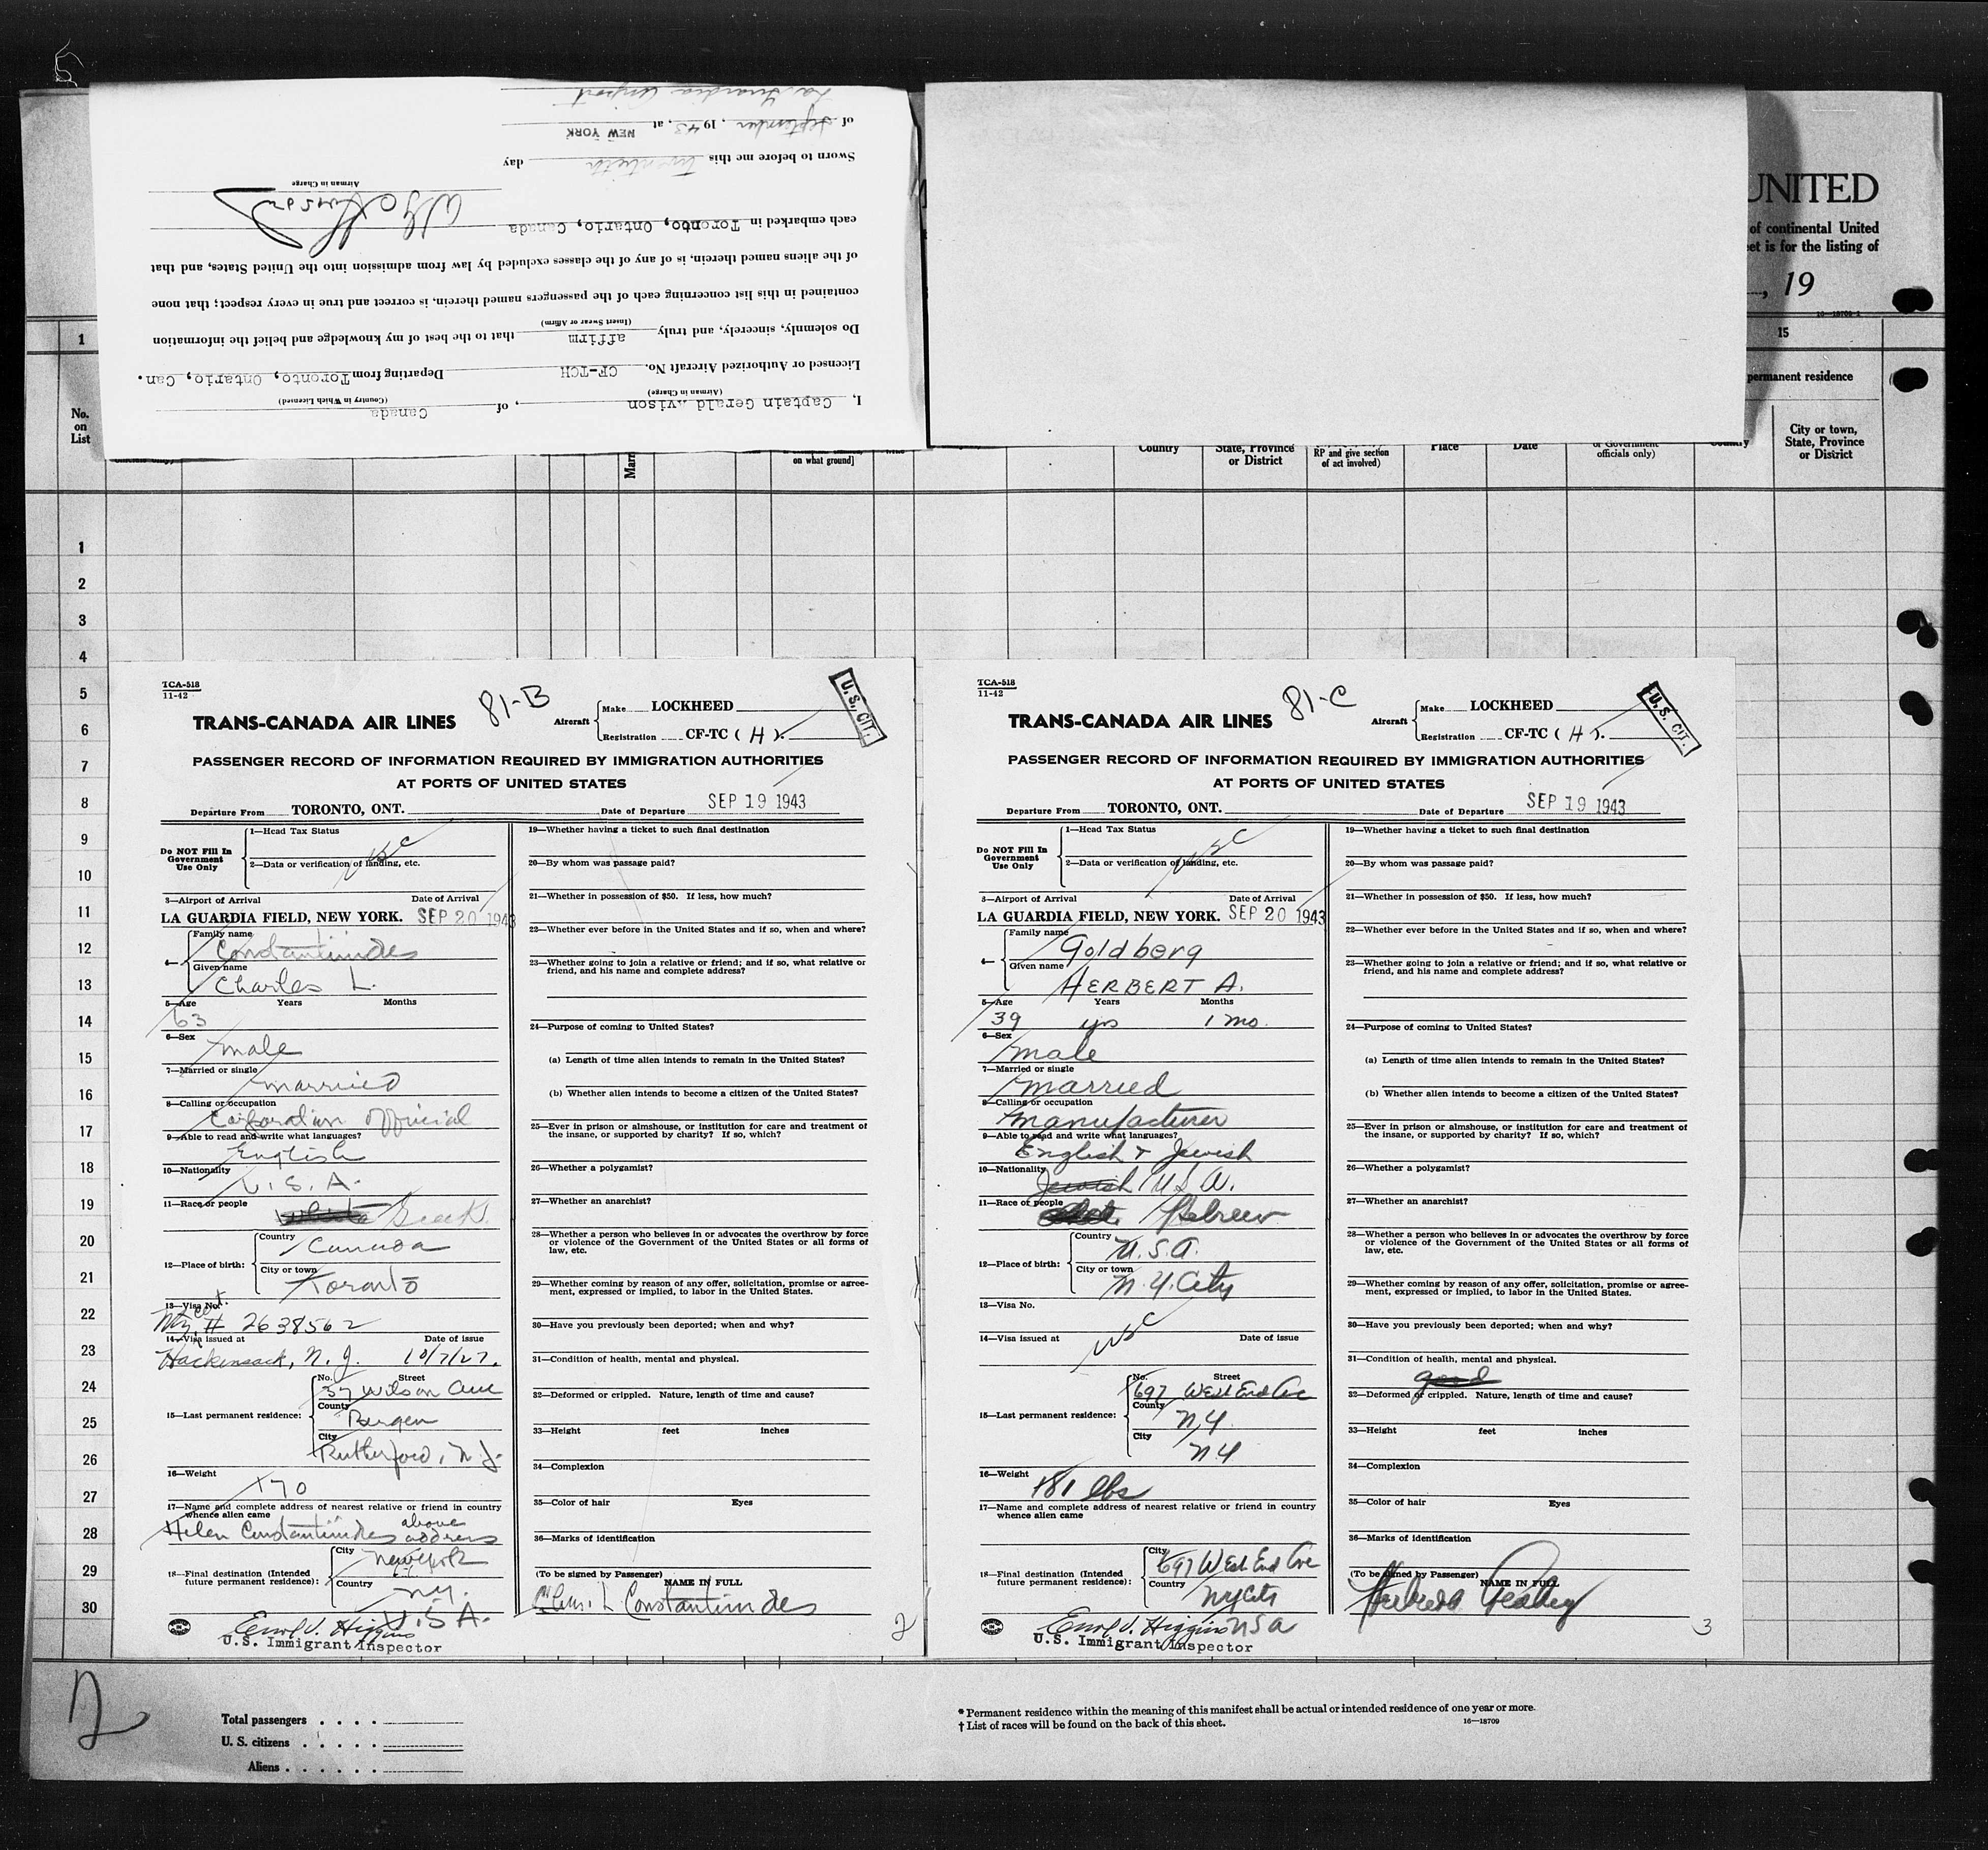 La Guardia Airport
of September, 1943, at NEW YORK
Sworn to before me this Twentieth day
Airman in Charge
each embarked in Toronto, Ontario, Canada
of the aliens named therein, is of any of the classes excluded by law from admission into the United States, and that
contained in this list concerning each of the passengers named therein, is correct and true in every respect; that none
(Insert Swear or Affirm)
Do solemnly, sincerely, and truly affirm that to the best of my knowledge and belief the information
Licensed or Authorized Aircraft No. CF-TCH Departing from Toronto, Ontario, Can.
(Airman in Charge) (Country in Which Licensed)
I, Captain Gerald , of Canada
UNITED
of continental United
et is for the listing of
, 19
16—18709-1
1
15
permanent residence
No.
on
List
on what ground]
Country
State, Province
or District
RP and give section
of act involved)
Place
Date
or Government
officials only)
Country
City or town,
State, Province
or District
1
2
3
4
5
6
7
8
9
10
11
12
13
14
15
16
17
18
19
20
21
22
23
24
25
26
27
28
29
30
TCA-518
11-42
81-B
U.S. CIT.
TRANS-CANADA AIR LINES
Aircraft
Make LOCKHEED
Registration CF-TC ( H ).
PASSENGER RECORD OF INFORMATION REQUIRED BY IMMIGRATION AUTHORITIES
AT PORTS OF UNITED STATES
Departure From TORONTO, ONT. Date of Departure SEP 19 1943
Do NOT Fill In
Government
Use Only
1—Head Tax Status
USC
2—Data or verification of landing, etc.
3—Airport of Arrival Date of Arrival
LA GUARDIA FIELD, NEW YORK. SEP 20 1943
4— Family name
Constantinides
Given name
Charles L.
5—Age Years Months
63
6—Sex
male
7—Married or single
married
8—Calling or occupation
Corporation official
9—Able to read and write what languages?
English
10—Nationality
U.S.A.
11—Race or people
Greek
12—Place of birth:
Country
Canada
City or town
Toronto
13—Visa No.
# 2638562
14—Visa issued at Date of issue
Hackensack, N.J. 10/7/27.
15—Last permanent residence:
No. Street
37 Wilson Ave
County
Bergen
City
Rutherford, N.J.
16—Weight
170
17—Name and complete address of nearest relative or friend in country
whence alien came
Helen Constantinides above address
18—Final destination (Intended
future permanent residence):
City
New York
Country
N.Y.
U.S.A.
Emil V. Higgins
U.S. Immigrant Inspector
19—Whether having a ticket to such final destination
20—By whom was passage paid?
21—Whether in possession of $50. If less, how much?
22—Whether ever before in the United States and if so, when and where?
23—Whether going to join a relative or friend; and if so, what relative or
friend, and his name and complete address?
24—Purpose of coming to United States?
(a) Length of time alien intends to remain in the United States?
(b) Whether alien intends to become a citizen of the United States?
25—Ever in prison or almshouse, or institution for care and treatment of
the insane, or supported by charity? If so, which?
26—Whether a polygamist?
27—Whether an anarchist?
28—Whether a person who believes in or advocates the overthrow by force
or violence of the Government of the United States or all forms of
law, etc.
29—Whether coming by reason of any offer, solicitation, promise or agree-
ment, expressed or implied, to labor in the United States.
30—Have you previously been deported; when and why?
31—Condition of health, mental and physical.
32—Deformed or crippled. Nature, length of time and cause?
33—Height feet inches
34—Complexion
35—Color of hair Eyes
36—Marks of identification
(To be signed by Passenger)
NAME IN FULL
Chas. L Constantinides
2
TCA-518
11-42
81-C
U.S. CIT.
TRANS-CANADA AIR LINES
Aircraft
Make LOCKHEED
Registration CF-TC ( H ).
PASSENGER RECORD OF INFORMATION REQUIRED BY IMMIGRATION AUTHORITIES
AT PORTS OF UNITED STATES
Departure From TORONTO, ONT. Date of Departure SEP 19 1943
Do NOT Fill In
Government
Use Only
1—Head Tax Status
USC
2—Data or verification of landing, etc.
3—Airport of Arrival Date of Arrival
LA GUARDIA FIELD, NEW YORK. SEP 20 1943
4— Family name
Goldberg
Given name
HERBERT A.
5—Age Years Months
39 yrs 1 mo.
6—Sex
male
7—Married or single
married
8—Calling or occupation
manufacturer
9—Able to read and write what languages?
English & Jewish
10—Nationality
Jewish U.S.A.
11—Race or people
Hebrew
12—Place of birth:
Country
U.S.A.
City or town
N.Y. City
13—Visa No.
USC
14—Visa issued at Date of issue
15—Last permanent residence:
No. Street
697 West End Ave
County
N.Y.
City
N.Y
16—Weight
181 lbs
17—Name and complete address of nearest relative or friend in country
whence alien came
18—Final destination (Intended
future permanent residence):
City
697 West End Ave
Country
NY City
USA
Emil V. Higgins
U.S. Immigrant Inspector
19—Whether having a ticket to such final destination
20—By whom was passage paid?
21—Whether in possession of $50. If less, how much?
22—Whether ever before in the United States and if so, when and where?
23—Whether going to join a relative or friend; and if so, what relative or
friend, and his name and complete address?
24—Purpose of coming to United States?
(a) Length of time alien intends to remain in the United States?
(b) Whether alien intends to become a citizen of the United States?
25—Ever in prison or almshouse, or institution for care and treatment of
the insane, or supported by charity? If so, which?
26—Whether a polygamist?
27—Whether an anarchist?
28—Whether a person who believes in or advocates the overthrow by force
or violence of the Government of the United States or all forms of
law, etc.
29—Whether coming by reason of any offer, solicitation, promise or agree-
ment, expressed or implied, to labor in the United States.
30—Have you previously been deported; when and why?
31—Condition of health, mental and physical.
good
32—Deformed or crippled. Nature, length of time and cause?
33—Height feet inches
34—Complexion
35—Color of hair Eyes
36—Marks of identification
(To be signed by Passenger)
NAME IN FULL
3
2
Total passengers . . . .
U. S. citizens . . . . .
Aliens . . . . . .
* Permanent residence within the meaning of this manifest shall be actual or intended residence of one year or more.
† List of races will be found on the back of this sheet.
16—18709